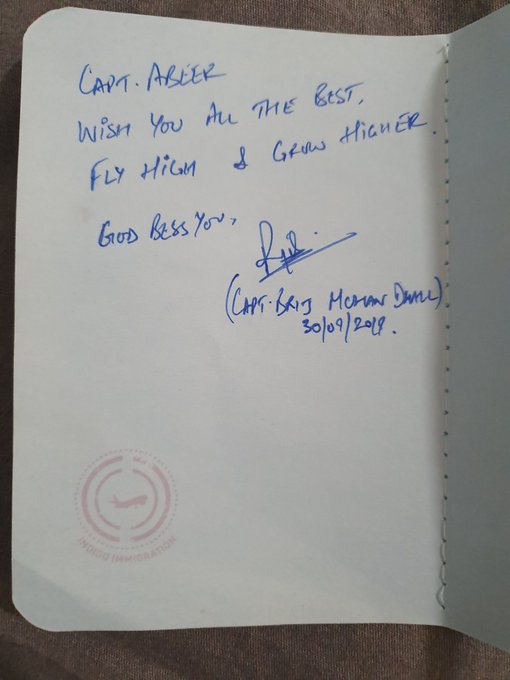 CAPT. ABEER
WISH YOU ALL THE BEST,
FLY HIGH & GROW HIGHER.
GOD BESS YOU,
(CAPT. BRIJ MOHAN
30/09/2019.
INDIGO IMMIGRATION